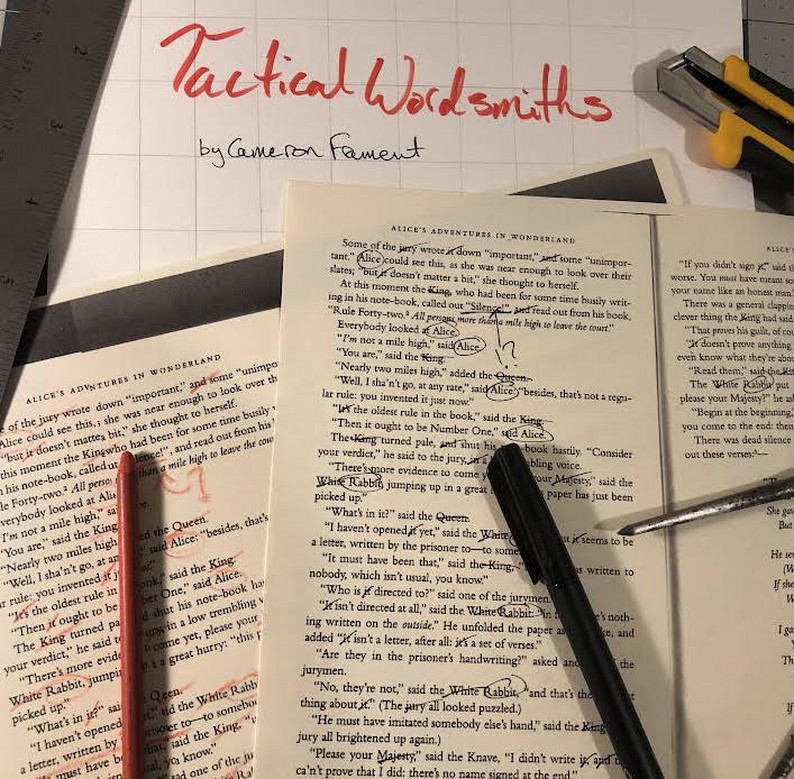 Tactical Wordsmiths
by Cameron Fament
2
3
4
5
ALICE'S ADVENTURES IN WONDERLAND
Some of the jury wrote it down "important," and some "unimpor-
tant." Alice could see this, as she was near enough to look over their
slates; "but it doesn't matter a bit," she thought to herself.
At this moment the King, who had been for some time busily writ-
ing in his note-book, called out "Silence!", and read out from his book,
"Rule Forty-two.² All persons more than a mile high to leave the court."
Everybody looked at Alice.
"I'm not a mile high," said Alice.
"You are," said the King.
!?
"Nearly two miles high," added the Queen.
"Well, I sha'n't go, at any rate," said Alice; "besides, that's not a regu-
lar rule: you invented it just now."
"It's the oldest rule in the book," said the King.
"Then it ought to be Number One," said Alice.
The King turned pale, and shut his book hastily. "Consider
your verdict," he said to the jury, in a bling voice.
"There's more evidence to come y your Majesty," said the
White Rabbit, jumping up in a great paper has just been
picked up."
"What's in it?" said the Queen.
"I haven't opened it yet," said the White but it seems to be
a letter, written by the prisoner to—to some
"It must have been that," said the King, as written to
nobody, which isn't usual, you know."
"Who is it directed to?" said one of the jurymen.
"It isn't directed at all," said the White Rabbit: "in noth-
ing written on the outside." He unfolded the paper as ke, and
added "It isn't a letter, after all: it's a set of verses."
"Are they in the prisoner's handwriting?" asked the
jurymen.
"No, they're not," said the White Rabbit, "and that's the
thing about it." (The jury all looked puzzled.)
"He must have imitated somebody else's hand," said the King
jury all brightened up again.)
"Please your Majesty," said the Knave, "I didn't write it, and
ca'n't prove that I did: there's no name signed at the end."
ALICE'S
"If you didn't sign it," said t
worse. You must have meant so
your name like an honest man.
There was a general clappin
clever thing the King had said
"That proves his guilt, of cou
"It doesn't prove anything
even know what they're abou
"Read them," said the Kin
The White Rabbit put
please your Majesty?" he as
"Begin at the beginning,
you come to the end: then
There was dead silence
out these verses:³—
"T
She gav
But
He se
(W
If she
W
I ga
Y
Th
If
ALICE'S ADVNTURES IN WONDERLAND
e of the jury wrote down "important," and some "unimpo
Alice could see this, she was near enough to look over th
"but it doesn't mattes bit," she thought to herself.
this moment the Kingwho had been for some time busily
n his note-book, called u ence!", and read out from his
le Forty-two.² All perso than a mile high to leave the cou
verybody looked at Ali
"I'm not a mile high," sa
"You are," said the King
"Nearly two miles high ed the Queen.
"Well, I sha'n't go, at an said Alice; "besides, that's
r rule: you invented it j
"It's the oldest rule in ook," said the King.
"Then it ought to be ber One," said Alice.
The King turned pa d shut his note-book ha
your verdict," he said t ury, in a low trembling v
"There's more evid come yet, please your
White Rabbit, jumpi a great hurry: "this p
picked up."
"What's in it?" sai Queen.
"I haven't opened said the White Rabb
a letter, written by soner to—to somebo
must have be that, said the King, "u
al, you know."
said one of the ju